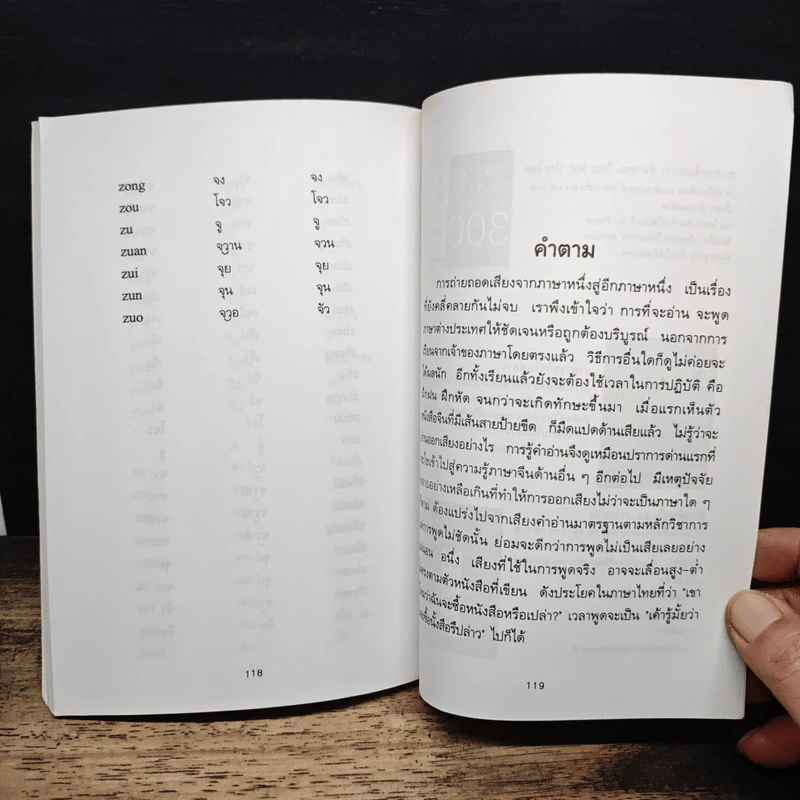 zong จง จง
zou โจว โจว
zu จู จู
zuan จฺวาน จวน
zui จุย จุย
zun จุน จุน
zuo จฺวอ จัว
118
คำตาม
การถ่ายถอดเสียงจากภาษาหนึ่งสู่อีกภาษาหนึ่ง เป็นเรื่อง
ที่ยังคลี่คลายกันไม่จบ เราพึงเข้าใจว่า การที่จะอ่าน จะพูด
ภาษาต่างประเทศให้ชัดเจนหรือถูกต้องบริบูรณ์ นอกจากการ
เรียนจากเจ้าของภาษาโดยตรงแล้ว วิธีการอื่นใดก็ดูไม่ค่อยจะ
ได้ผลนัก อีกทั้งเรียนแล้วยังจะต้องใช้เวลาในการปฏิบัติ คือ
ฝึกฝน ฝึกหัด จนกว่าจะเกิดทักษะขึ้นมา เมื่อแรกเห็นตัว
หนังสือจีนที่มีเส้นสายป้ายขีด ก็มืดแปดด้านเสียแล้ว ไม่รู้ว่าจะ
ออกเสียงอย่างไร การรู้คำอ่านจึงดูเหมือนปราการด่านแรกที่
เข้าไปสู่ความรู้ภาษาจีนด้านอื่น ๆ อีกต่อไป มีเหตุปัจจัย
อย่างเหลือเกินที่ทำให้การออกเสียงไม่ว่าจะเป็นภาษาใด ๆ
ต้องแปร่งไปจากเสียงคำอ่านมาตรฐานตามหลักวิชาการ
การพูดไม่ชัดนั้น ย่อมจะดีกว่าการพูดไม่เป็นเสียเลยอย่าง
อนึ่ง เสียงที่ใช้ในการพูดจริง อาจจะเลื่อนสูง-ต่ำ
ตามตัวหนังสือที่เขียน ดังประโยคในภาษาไทยที่ว่า "เขา
ว่าฉันจะซื้อหนังสือหรือเปล่า?" เวลาพูดจะเป็น "เค้ารู้มั้ยว่า
ซื้อนั้งสือรึปล่าว" ไปก็ได้
119